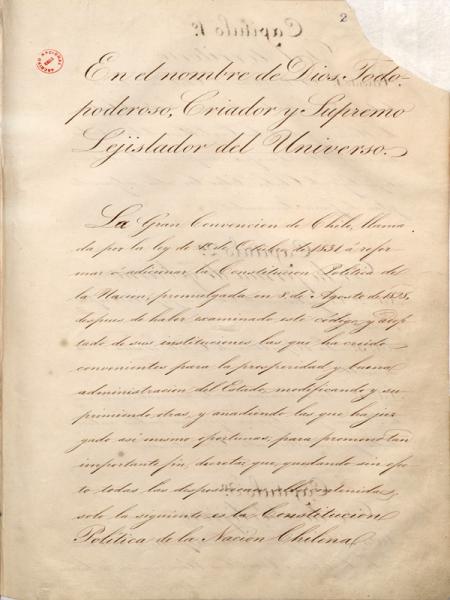 2
En el nombre de Dios Todo-
poderoso, Criador y Supremo
Lejislador del Universo.
La Gran Convencion de Chile, llama
da por la ley de 1º de Octubre de 1831 á refor
mar ó adicionar la Constitucion Politica de
la Nacion, promulgada en 8 de Agosto de 1828,
despues de haber examinado este código, y adop
tado de sus instituciones las que ha creido
convenientes para la prosperidad y buena
administracion del Estado, modificando y su
primiendo otras, y anadiendo las que ha juz
gado asi mismo oportunas, para promover tan
importante fin, decreta: que, quedando sin efec
to todas las disposiciones alli contenidas,
solo la siguiente es la Constitucion
Politica de la Nacion Chilena